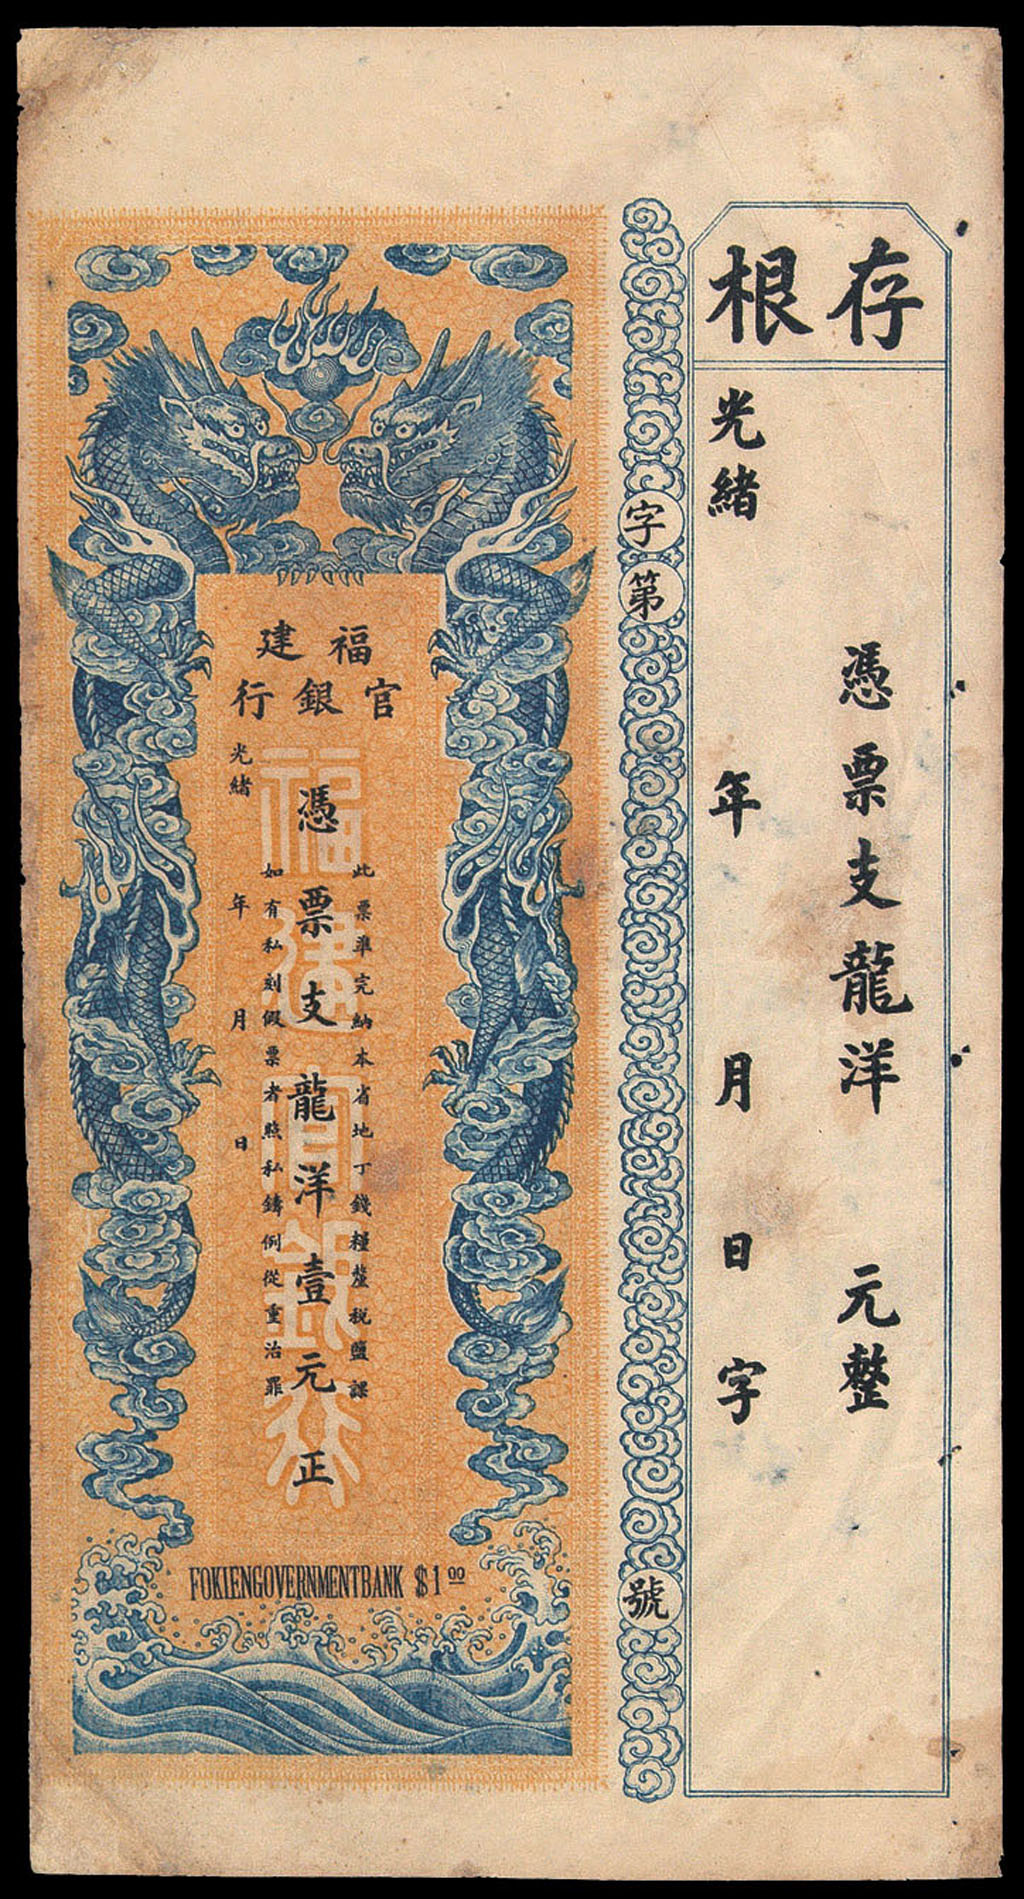 存根
憑票支龍洋 元整
光緒 年 月 日 字
字第 號
福建
官銀行
此票準完納本省地丁錢糧釐稅鹽課
憑票支龍洋壹元正
如有私刻假票者照私鑄例從重治罪
光緒 年 月 日
福建官銀行
FOKIENGOVERNMENTBANK $1.00